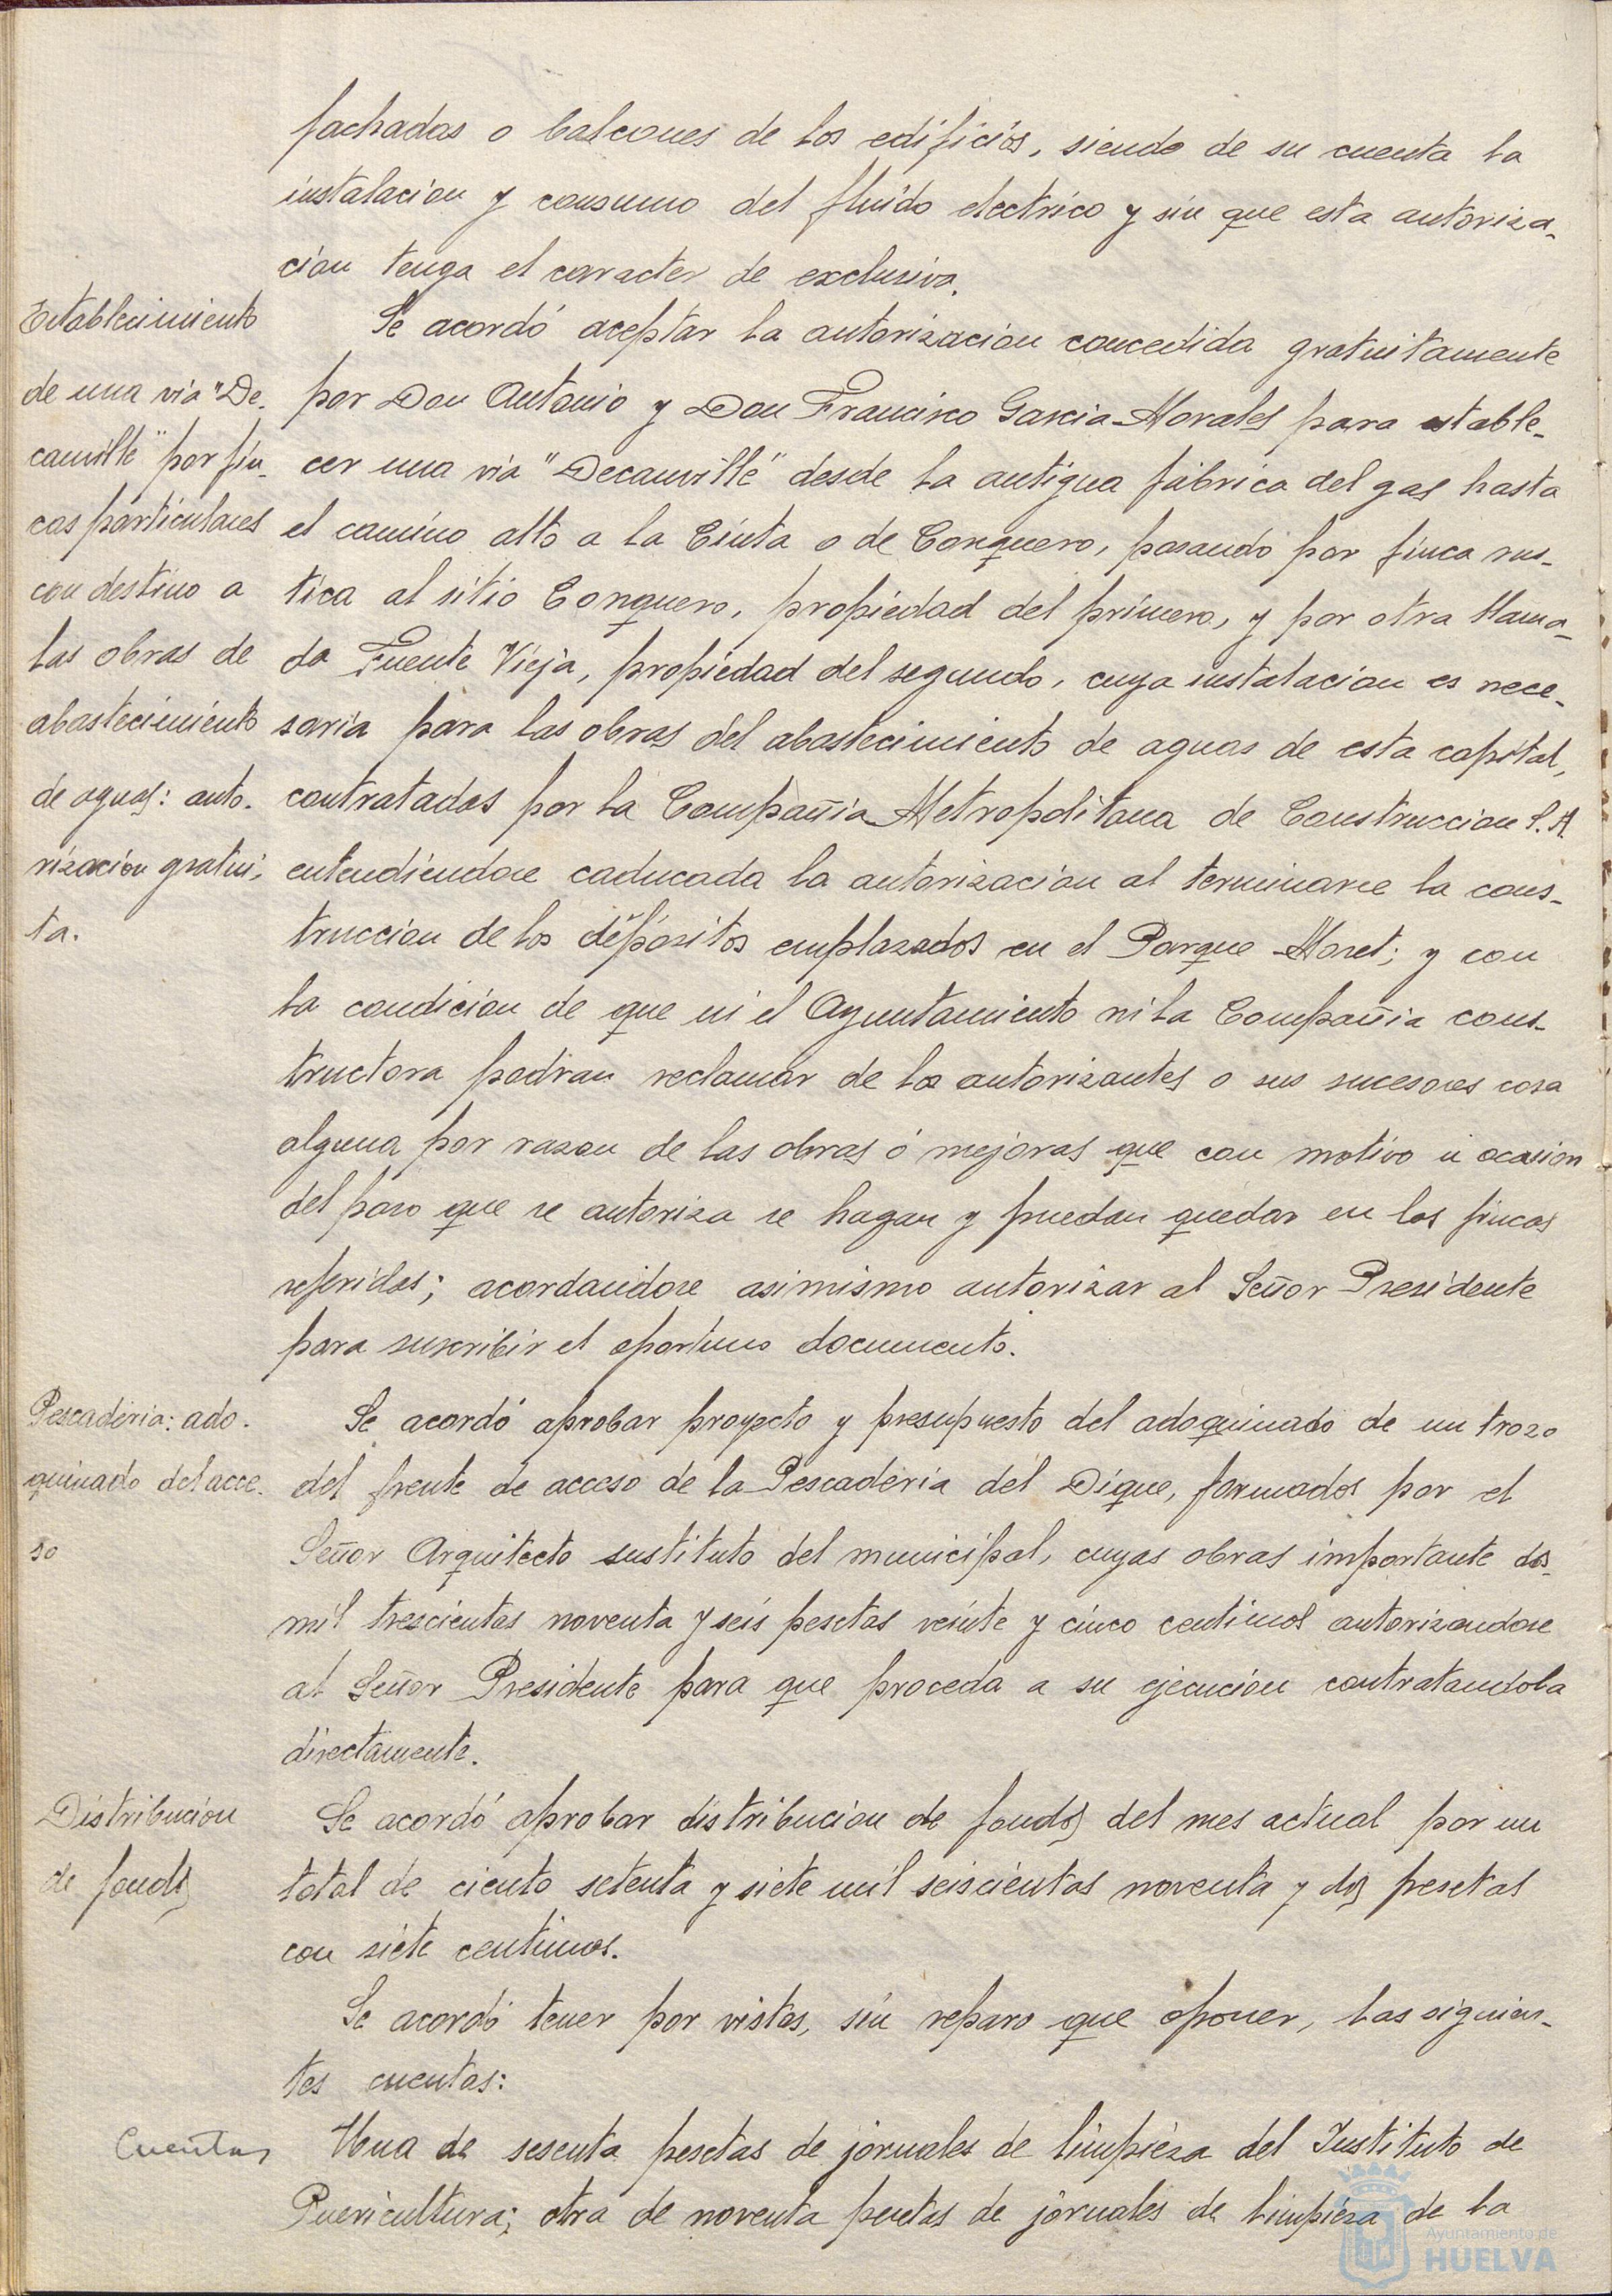 fachadas o balcones de los edificios, siendo de su cuenta la
instalacion y consumo del fluido electrico y sin que esta autoriza-
cion tenga el caracter de exclusiva.
Establecimiento
de una via "De-
cauville" por fin-
cas particulares
con destino a
las obras de
abastecimiento
de aguas: auto-
rización gratui-
ta.
Se acordó aceptar la autorizacion concedida gratuitamente
por Don Antonio y Don Francisco Garcia Morales para estable-
cer una via "Decauville" desde la antigua fábrica del gas hasta
el camino alto a la Cinta o de Conquero, pasando por finca rus-
tica al sitio Conquero, propiedad del primero, y por otra llama-
da Fuente Vieja, propiedad del segundo, cuya instalacion es nece-
saria para las obras del abastecimiento de aguas de esta capital,
contratadas por la Compañia Metropolitana de Construccion S.A.
entendiendose caducada la autorizacion al terminarse la cons-
truccion de los depósitos emplazados en el Parque Moret; y con
la condicion de que ni el Ayuntamiento ni la Compañia cons-
tructora podran reclamar de los autorizantes o sus sucesores cosa
alguna por razon de las obras ó mejoras que con motivo u ocasion
del paso que se autoriza se hagan y puedan quedar en las fincas
referidas; acordandose asimismo autorizar al Señor Presidente
para suscribir el oportuno documento.
Pescaderia: ado-
quinado del acce-
so
Se acordó aprobar proyecto y presupuesto del adoquinado de un trozo
del frente de acceso de la Pescaderia del Dique, formados por el
Señor Arquitecto sustituto del municipal, cuyas obras importante dos
mil trescientas noventa y seis pesetas veinte y cinco centimos autorizandose
al Señor Presidente para que proceda a su ejecución contratandola
directamente.
Distribucion
de fondos
Se acordó aprobar distribucion de fondos del mes actual por un
total de ciento setenta y siete mil seiscientas noventa y dos pesetas
con siete centimos.
Se acordó tener por vistas, sin reparo que oponer, las siguien-
tes cuentas:
Cuentas
Una de sesenta pesetas de jornales de limpieza del Instituto de
Puericultura; otra de noventa pesetas de jornales de limpieza de la
Ayuntamiento de
HUELVA